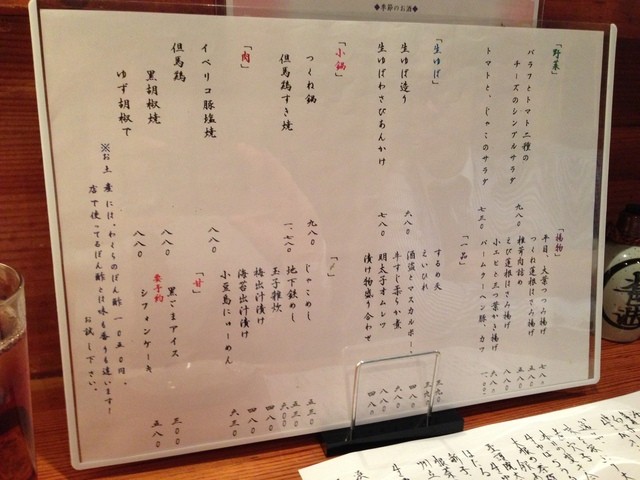 ◆季節のお酒◆
「野菜」
バラフとトマト二種の
チーズのシンプルサラダ 九八〇
トマトと、じゃこのサラダ 七三〇
「生ゆば」
生ゆば造り 六八〇
生ゆばわさびあんかけ 七八〇
「小鍋」
つくね鍋 九八〇
但馬鶏すき焼 一、七八〇
「肉」
イベリコ豚塩焼 八八〇
但馬鶏
黒胡椒焼 八八〇
ゆず胡椒で 八八〇
「揚物」
平目、大葉つつみ揚げ 七八〇
つくね蓮根はさみ揚げ 五八〇
椎茸肉詰め 五八〇
えび蓮根はさみ揚げ 八八〇
小エビと三つ葉かき揚げ 六八〇
バームクーヘン豚、カツ 一、〇八〇
「一品」
するめ天
えいひれ
酒盗とマスカルポーネ 四八〇
牛すじ柔らか煮 六八〇
明太子オムレツ 八八〇
漬け物盛り合わせ 四八〇
じゃこめし 五三〇
地下鉄めし 五三〇
玉子雑炊 六〇〇
梅出汁漬け 四八〇
海苔出汁漬け 四八〇
小豆島にゅーめん 六三〇
「甘」
黒ごまアイス 三〇〇
シフォンケーキ 五八〇
要予約
※お土産には、わくらのぽん酢 一〇五〇円。
店で使ってるぽん酢とは味も香りも違います！
お試し下さい。